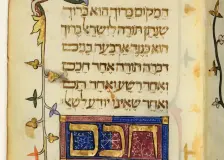 המקום ברוך הוא ברוך
שנתן תורה לישראל ברוך
הוא כנגד ארבעה בנים
דברה תורה אחד חכם
ואחד רשע ואחד תם
ואחד שאינו יודע לשאל
חכם